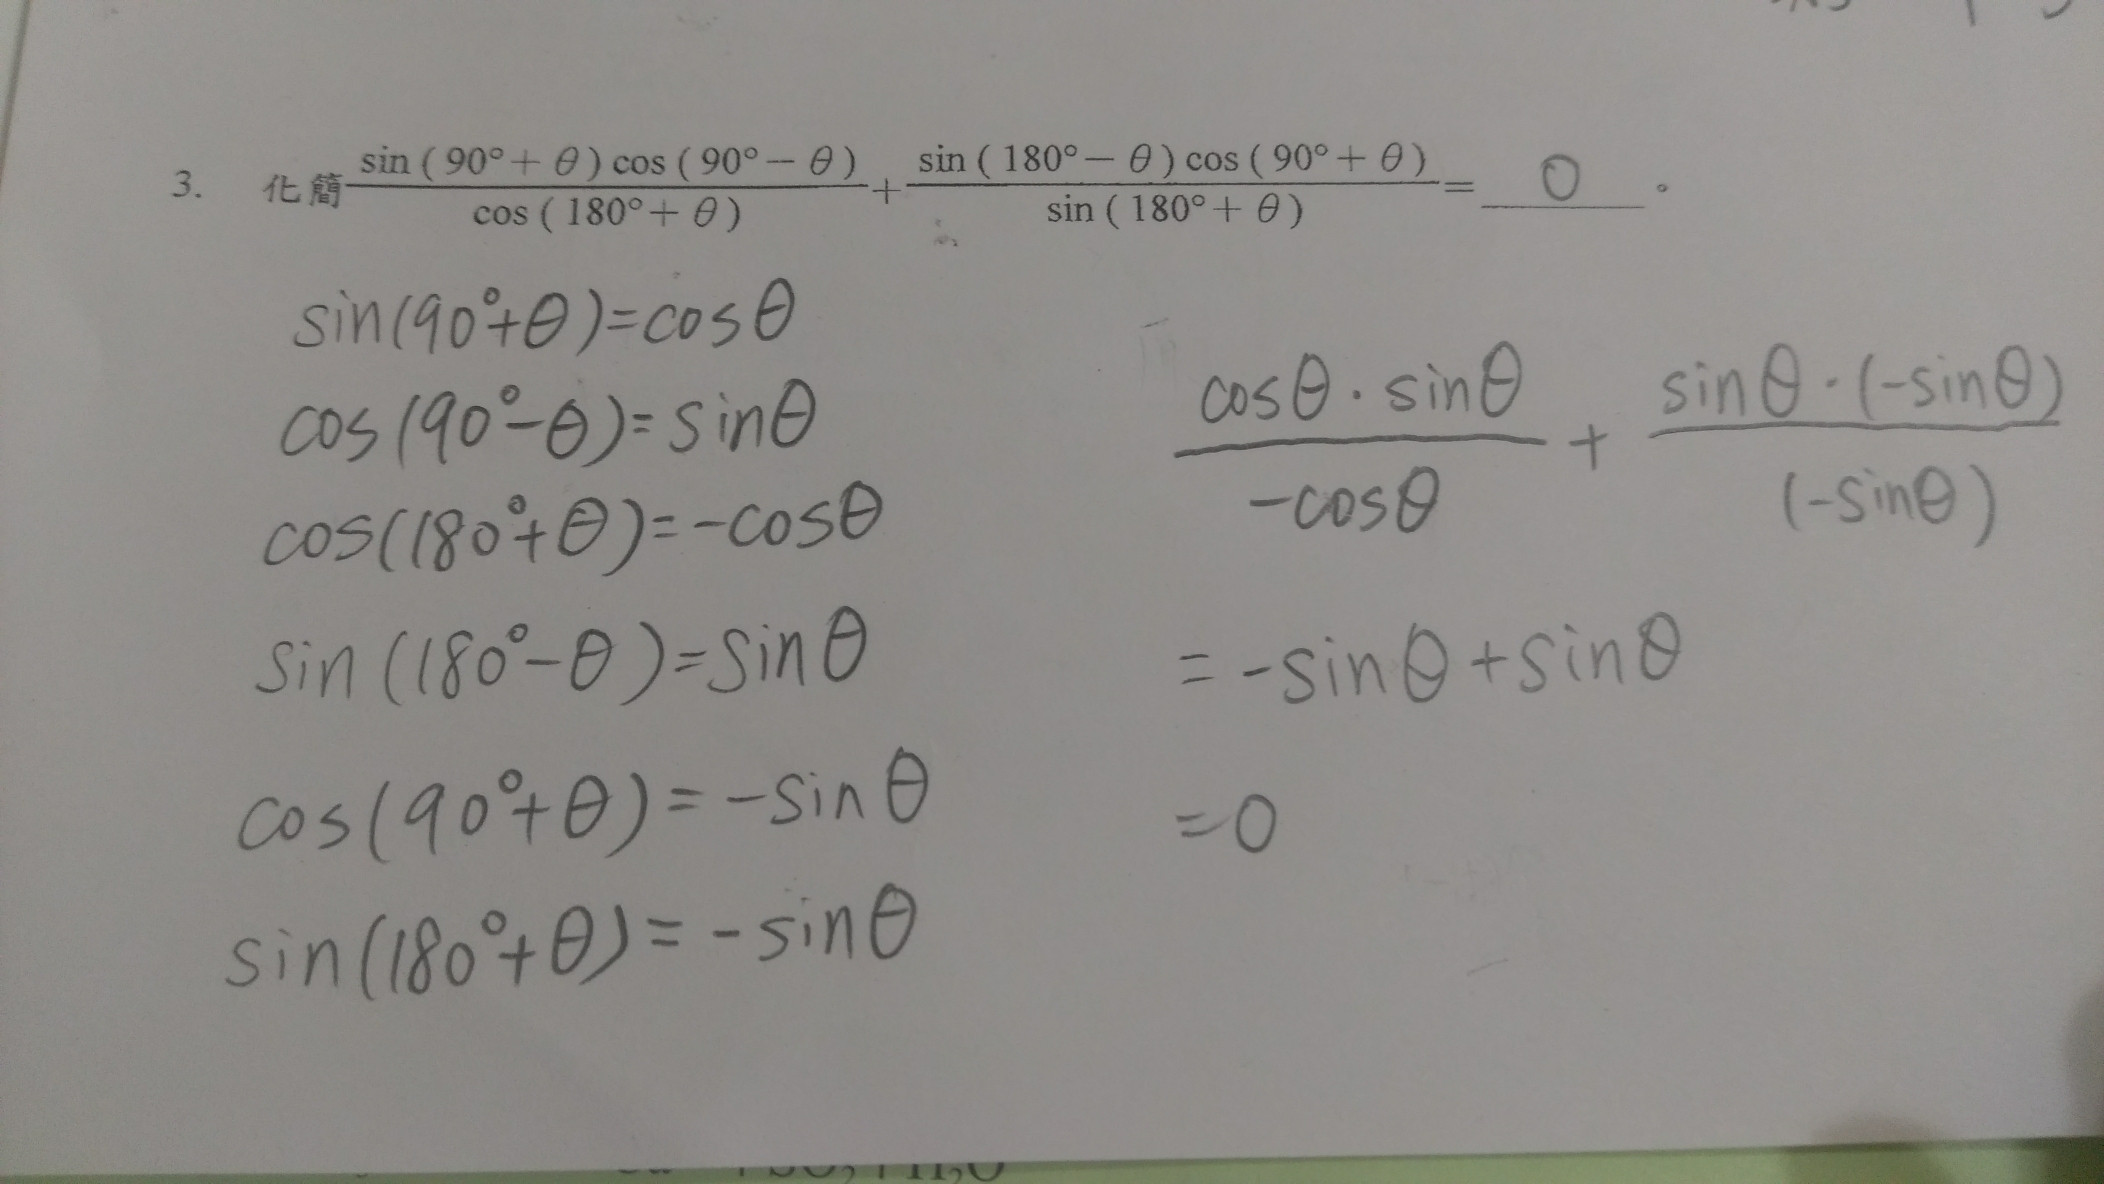 3. 化簡 sin(90°+θ)cos(90°−θ)/cos(180°+θ) + sin(180°−θ)cos(90°+θ)/sin(180°+θ) = 0 。
sin(90°+θ)=cosθ
cos(90°-θ)=sinθ
cos(180°+θ)=-cosθ
sin(180°-θ)=sinθ
cos(90°+θ)=-sinθ
sin(180°+θ)=-sinθ
cosθ·sinθ/-cosθ + sinθ·(-sinθ)/(-sinθ)
=-sinθ+sinθ
=0